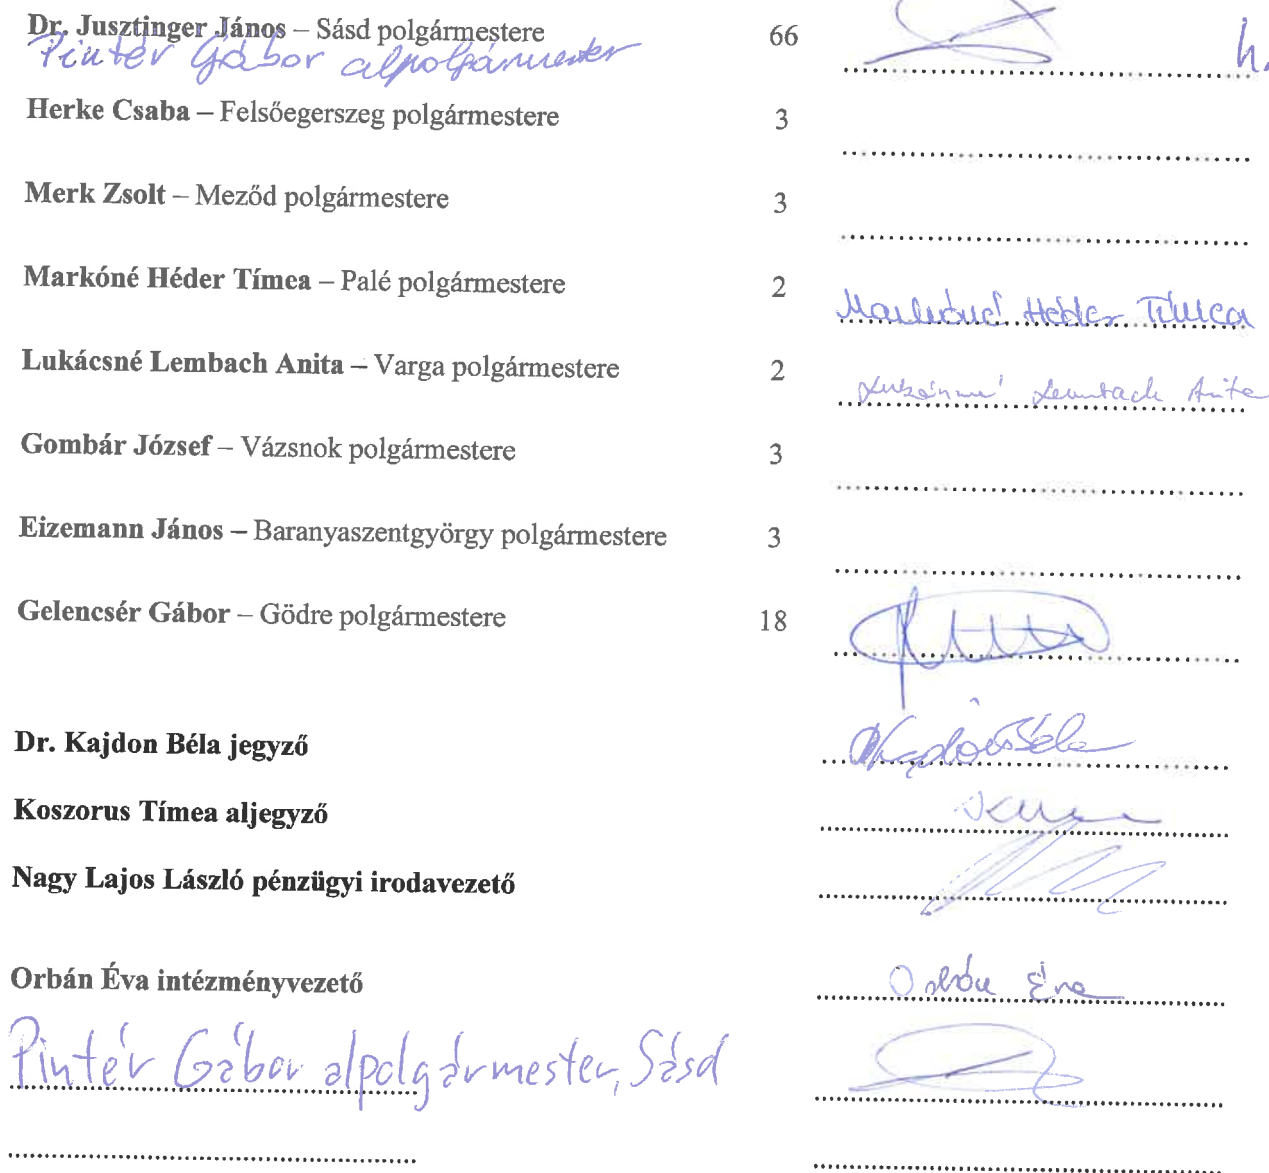 Dr. Jusztinger János – Sásd polgármestere 66 h.
Pintér Gábor alpolgármester
Herke Csaba – Felsőegerszeg polgármestere 3
Merk Zsolt – Meződ polgármestere 3
Markóné Héder Tímea – Palé polgármestere 2 Markóné Héder Tímea
Lukácsné Lembach Anita – Varga polgármestere 2 Lukácsné Lembach Anita
Gombár József – Vázsnok polgármestere 3
Eizemann János – Baranyaszentgyörgy polgármestere 3
Gelencsér Gábor – Gödre polgármestere 18
Dr. Kajdon Béla jegyző
Koszorus Tímea aljegyző
Nagy Lajos László pénzügyi irodavezető
Orbán Éva intézményvezető Orbán Éva
Pintér Gábor alpolgármester, Sásd